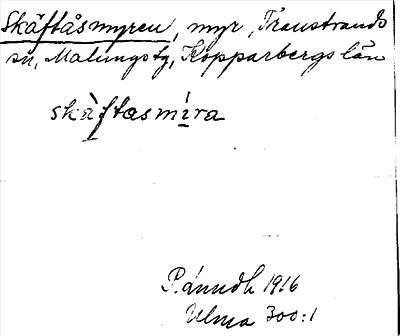 Skäftåsmyren, myr, Transtrands
sn, Malungs tg, Kopparbergs län
skäftasmíra
1916
Ulma 300:1